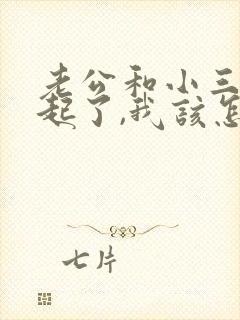 老公和小三
起了,我该怎
七片